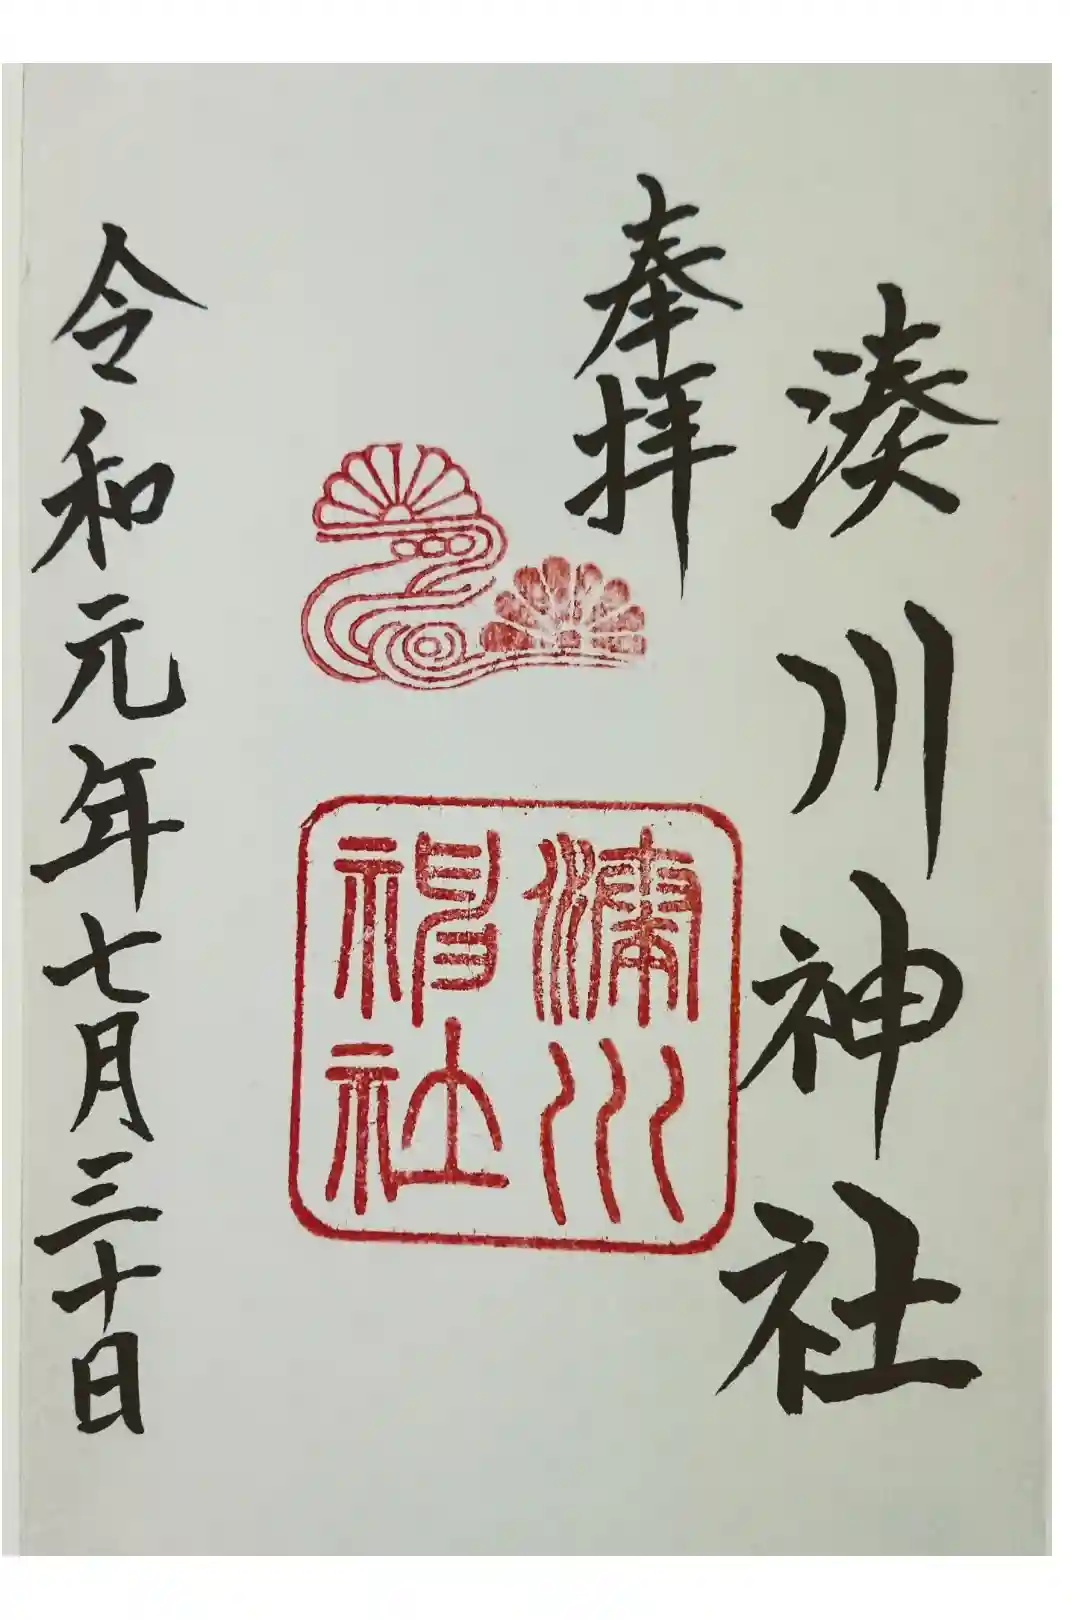 湊川神社
奉拝
湊川
神社
令和元年七月三十日